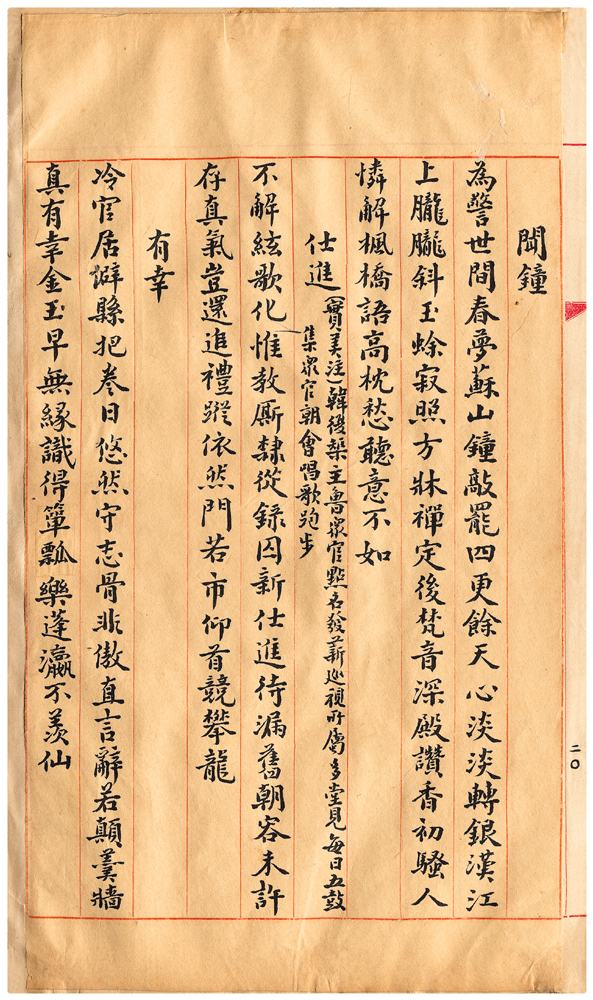 聞鐘
為警世間春夢蘇山鐘敲罷四更餘天心淡淡轉銀漢江
上朧朧斜玉蜍寂照方牀禪定後梵音深殿讚香初騷人
憐解楓橋語高枕愁聽意不如
仕進(實美注)韓復榘主魯眾官點名發薪巡視所屬多堂見每日五鼓
集眾官朝會唱歌跑步
不解絃歌化惟教廝隸從錄囚新仕進待漏舊朝容未許
存真氣豈還追禮蹤依然門若市仰首競攀龍
有幸
冷官居僻縣把卷日悠然守志骨非傲直言辭若顛羹牆
真有幸金玉早無緣識得簞瓢樂蓬瀛不羨仙
二〇